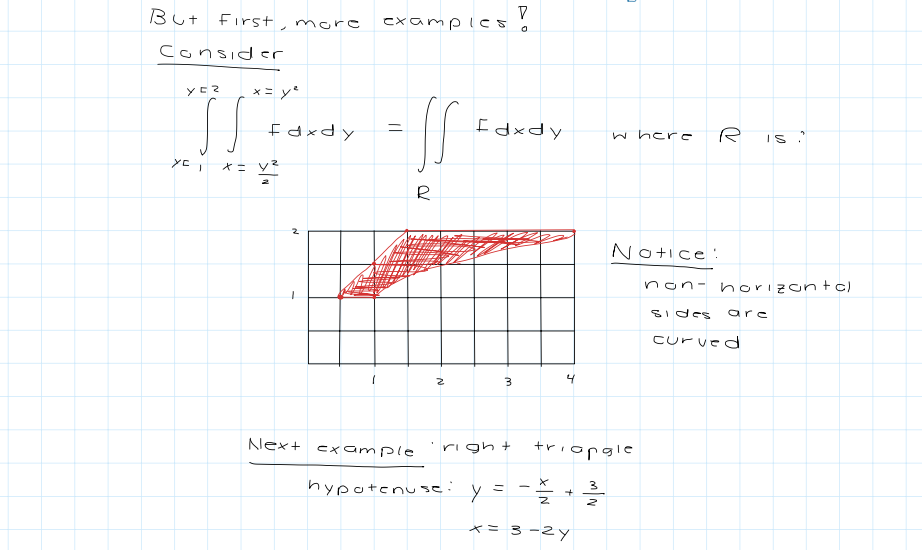 But first, more examples!
Consider
y=2 x=y²
∫ ∫ f dxdy = ∬ f dxdy where R is:
y=1 x= y²/2
R
2
1
1 2 3 4
Notice:
non-horizontal
sides are
curved
Next example right triangle
hypotenuse: y = -x/2 + 3/2
x = 3-2y